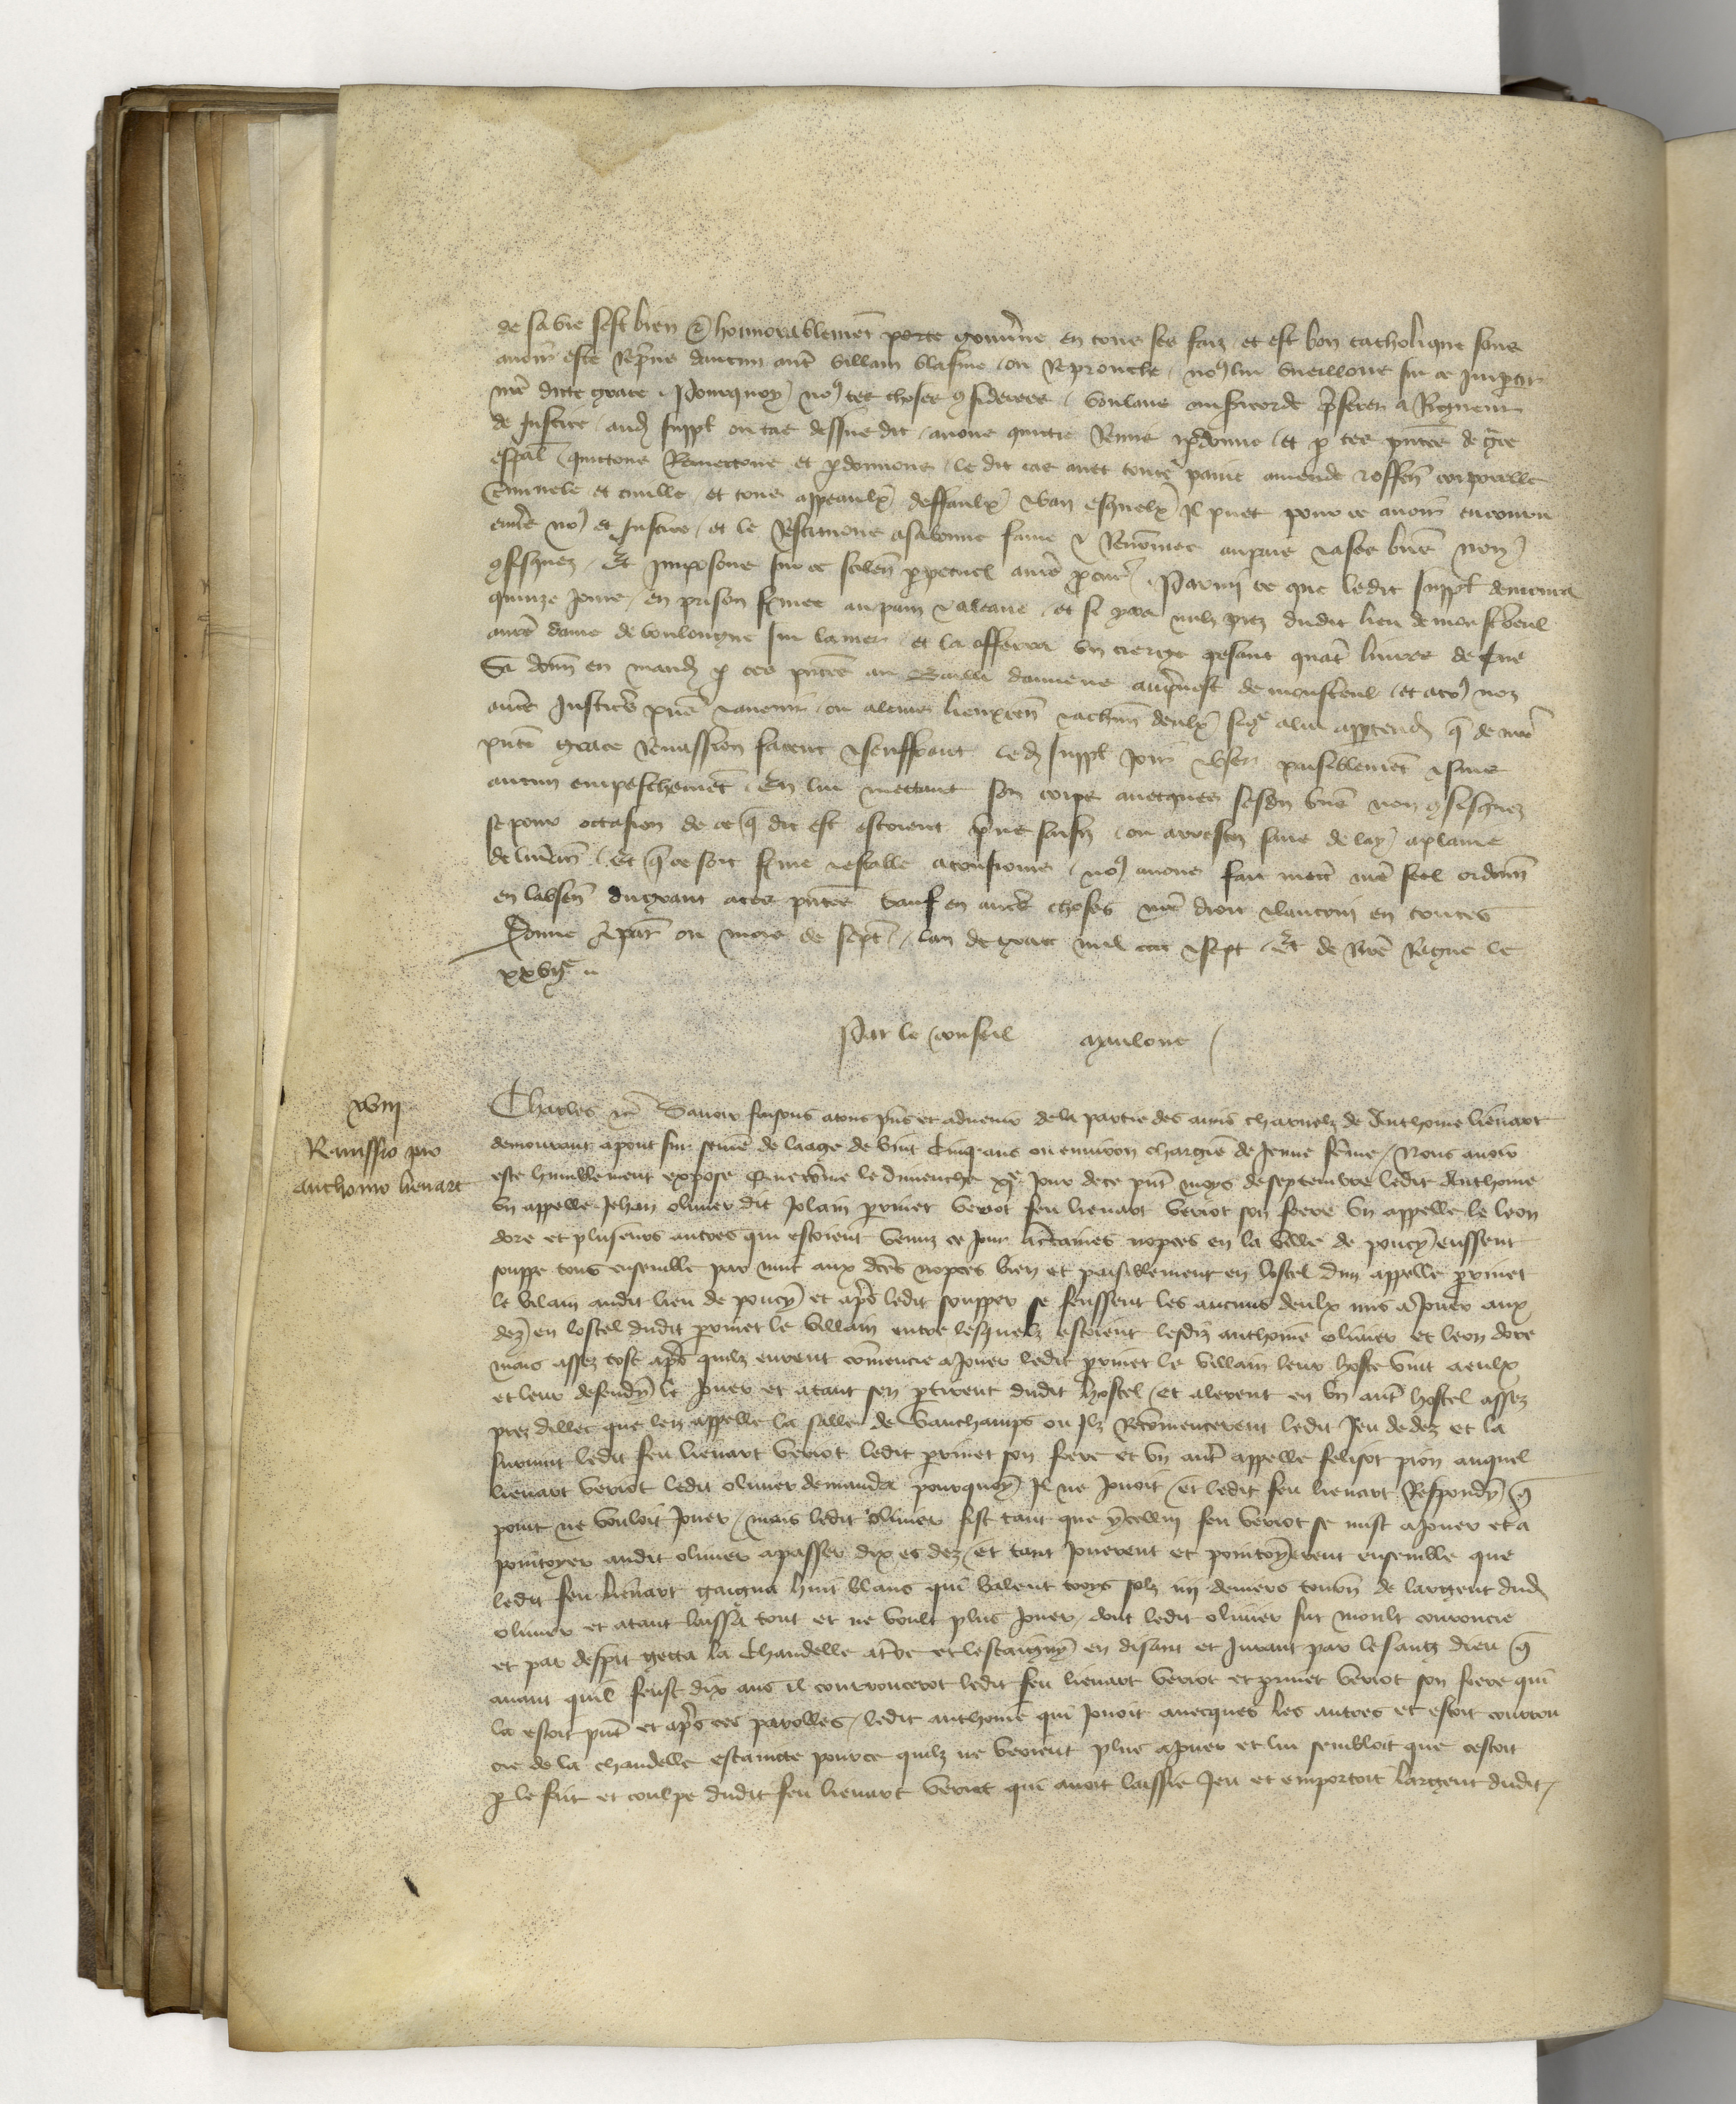 de sa vie sest bien et honnorablemēt porte gouṽne en tous ses faiz et est bon catholique sans
auoir este rep̄ns daucun aut̄ villain blasme ou reprouche / no9 lui vueillons sur ce impartir
nr̄e dicte grace / Pourquoy no9 ces choses 9siderees / voulans misericorde p̄ferer a rigueur
de justice / aud suppl̄ ou cas dessusdit / auons quictie remis et p̄donne / et p ces pn̄tes de gr̄ce
esp̄al / quictons remectons et p̄donnons / le dit cas auec toute paine amende et offen̄ corporelle
c̄iminele et ciuille / et tous appeaulx deffaulx et ban esquelx il puet pour ce auoir encouru
enus̄ no9 et justice / et le restituons a sa bonne fame et renōmee au pais et a ses biēs non
9fisquez / Et imposons sur ce scilen̄ p̄petuel a nr̄e p̄cur̄ / Parmi ce que ledit suppl̄ demourra
quinze jours en prison fermee au pain et a leaue / et si yra nulz piez dudit lieu de monst̄eul
a nr̄e dame de Boulongne sur la mer / et la offerra vn cierge pesant quat̄ liures de cire
Si donn̄ en mand p ces pn̄tes au Bailli damiens au p̄uost de monst̄eul / et a to9 noz
aut̄s justic̄s pn̄s et auenir / ou a leurs lieuxten̄ et a chūn deulx sic̄e a lui app̄tend q̄ de nr̄e
pn̄te grace et remission facent et seuffrent led suppl̄ joir et vser paisiblemēt et sans
aucun empeschemēt / En lui mettant son corps auecques sesdiz biēs non 9fisquez
se pour occasion de ce q̄ dit est estoient p̄ns saisiz / ou arrestez sans delay a plaine
deliur̄an̄ / Et q̄ ce soit ferme et estable a tousiours / no9 auons fait mett̄ nr̄e seel ordonn̄
en labsen̄ du grant a ces pn̄tes Sauf en aut̄s choses nr̄e droit et lautrui en toutes
Donne a par̄ ou mois de sept̄ / lan de grace mil cccc et sept / Et de nr̄e Regne le
xxviie
Par le conseil Maulone
xviii
Remissio pro
anthonio lienart
Charles etc̄ Sauoir faisons a tous pn̄s et aduenir de la partie des amis charnelz de Anthoine lienart
demourant a pont sur seinne de laage de vint Cinq ans ou enuiron chargie de jeune fēme / Nous auoir
este humblement expose Que cōme le dimenche xie jour de ce pn̄t moys de septembre ledit Anthoine
vn appelle Jehan oliuier dit Jolain perrinet veriot feu lienart veriot son frere vn appelle le leon
dore et plusieurs autres qui estoient venuz ce jour a c̄taines nopces en la ville de poucy eussent
souppe tous ensemble par nuit aux dc̄es nopces bien et paisiblement en lostel dun appelle perrinet
le vilain audit lieu de poucy et ap̄s ledit soupper se feussent les aucuns deulx mis a jouer aux
dez en lostel dudit perrinet le villain entre lesquelz estoient lesdiz anthoine oliuier et leon dore
mais assez tost ap̄s quilz eurent cōmencie a jouer ledit perrinet le villain leur hoste vint a eulx
et leur defendy le jouer et atant sen p̄tirent dudit hostel / et alerent en vn aut̄ hostel assez
pres dillec que len appelle la salle de vauchamps ou ilz recōmencerent ledit jeu de dez et la
suruint ledit feu lienart veriot ledit perrinet son frere et vn aut̄ appelle felisot pion auquel
lienart veriot ledit oliuier demanda pourquoy il ne jouoit / et ledit feu lienart respondy q̄
point ne vouloit jouer / mais ledit oliuier fist tant que ycellui feu veriot se mist a jouer et a
pointoyer audit oliuier a passer dix es dez / et tant jouerent et pointoyerent ensemble que
ledit feu lienart gaigna huit blans qui valent troys solz iiij deniers tourn̄ de largent dud
oliuier et atant laissa tout et ne voult plus jouer / dont ledit oliuier fut moult courroucie
et par despit getta la Chandelle a t̄re et lestaigny en disant et jurant par le sang dieu q̄
auant quil feust dix ans il courrouceroit ledit feu lienart veriot et perrinet veriot son frere qui
la estoit pn̄t et ap̄s ces parolles / ledit anthoine qui jouoit auecques les autres et estoit courrou
cie de la chandelle estaincte pource quilz ne veoient plus a jouer et lui sembloit que cestoit
p le fait et coulpe dudit feu lienart veriot qui auoit laissie jeu et emportoit largent dudit /